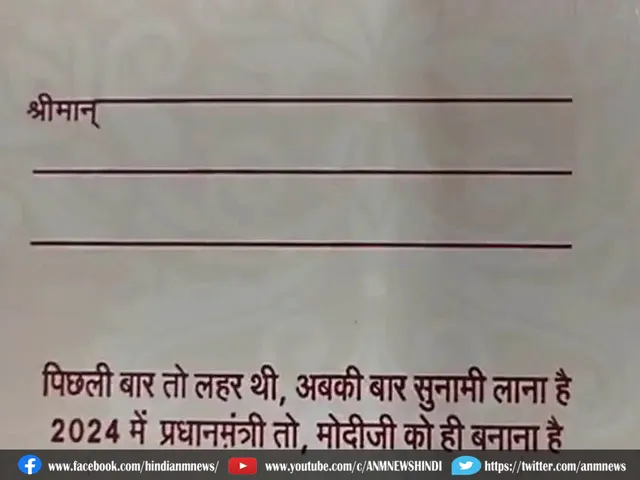 श्रीमान्
पिछली बार तो लहर थी, अबकी बार सुनामी लाना है
2024 में प्रधानमंत्री तो, मोदीजी को ही बनाना है
www.facebook.com/hindianmnews/ www.youtube.com/c/ANMNEWSHINDI https://twitter.com/anmnews